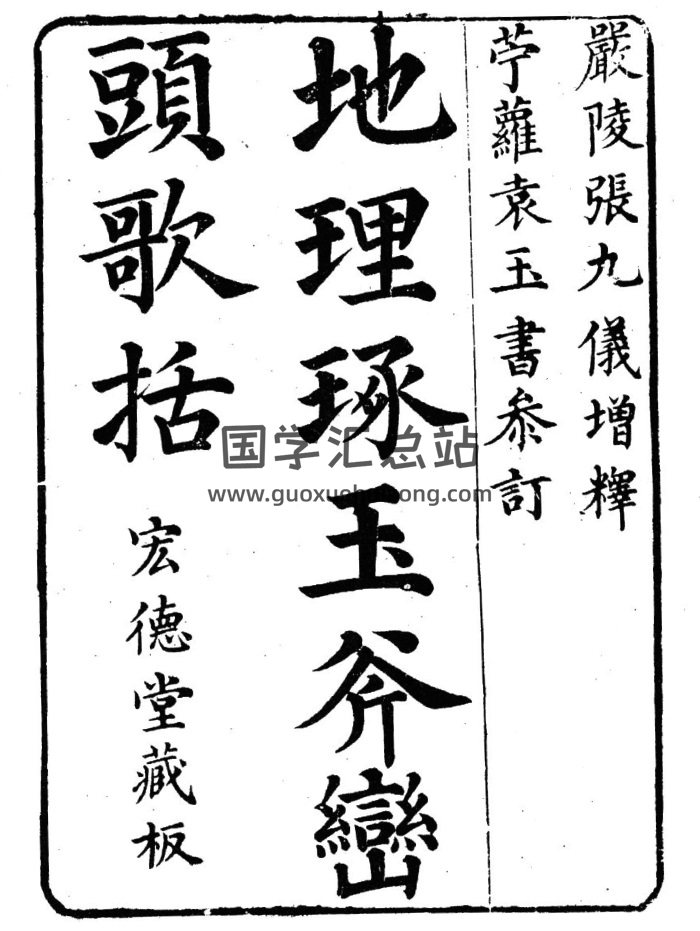 嚴陵張九儀增釋
苧蘿袁玉書叅訂
地理琢玉斧巒
頭歌括
宏德堂藏板
国学汇总站
www.guoxuehuizong.com